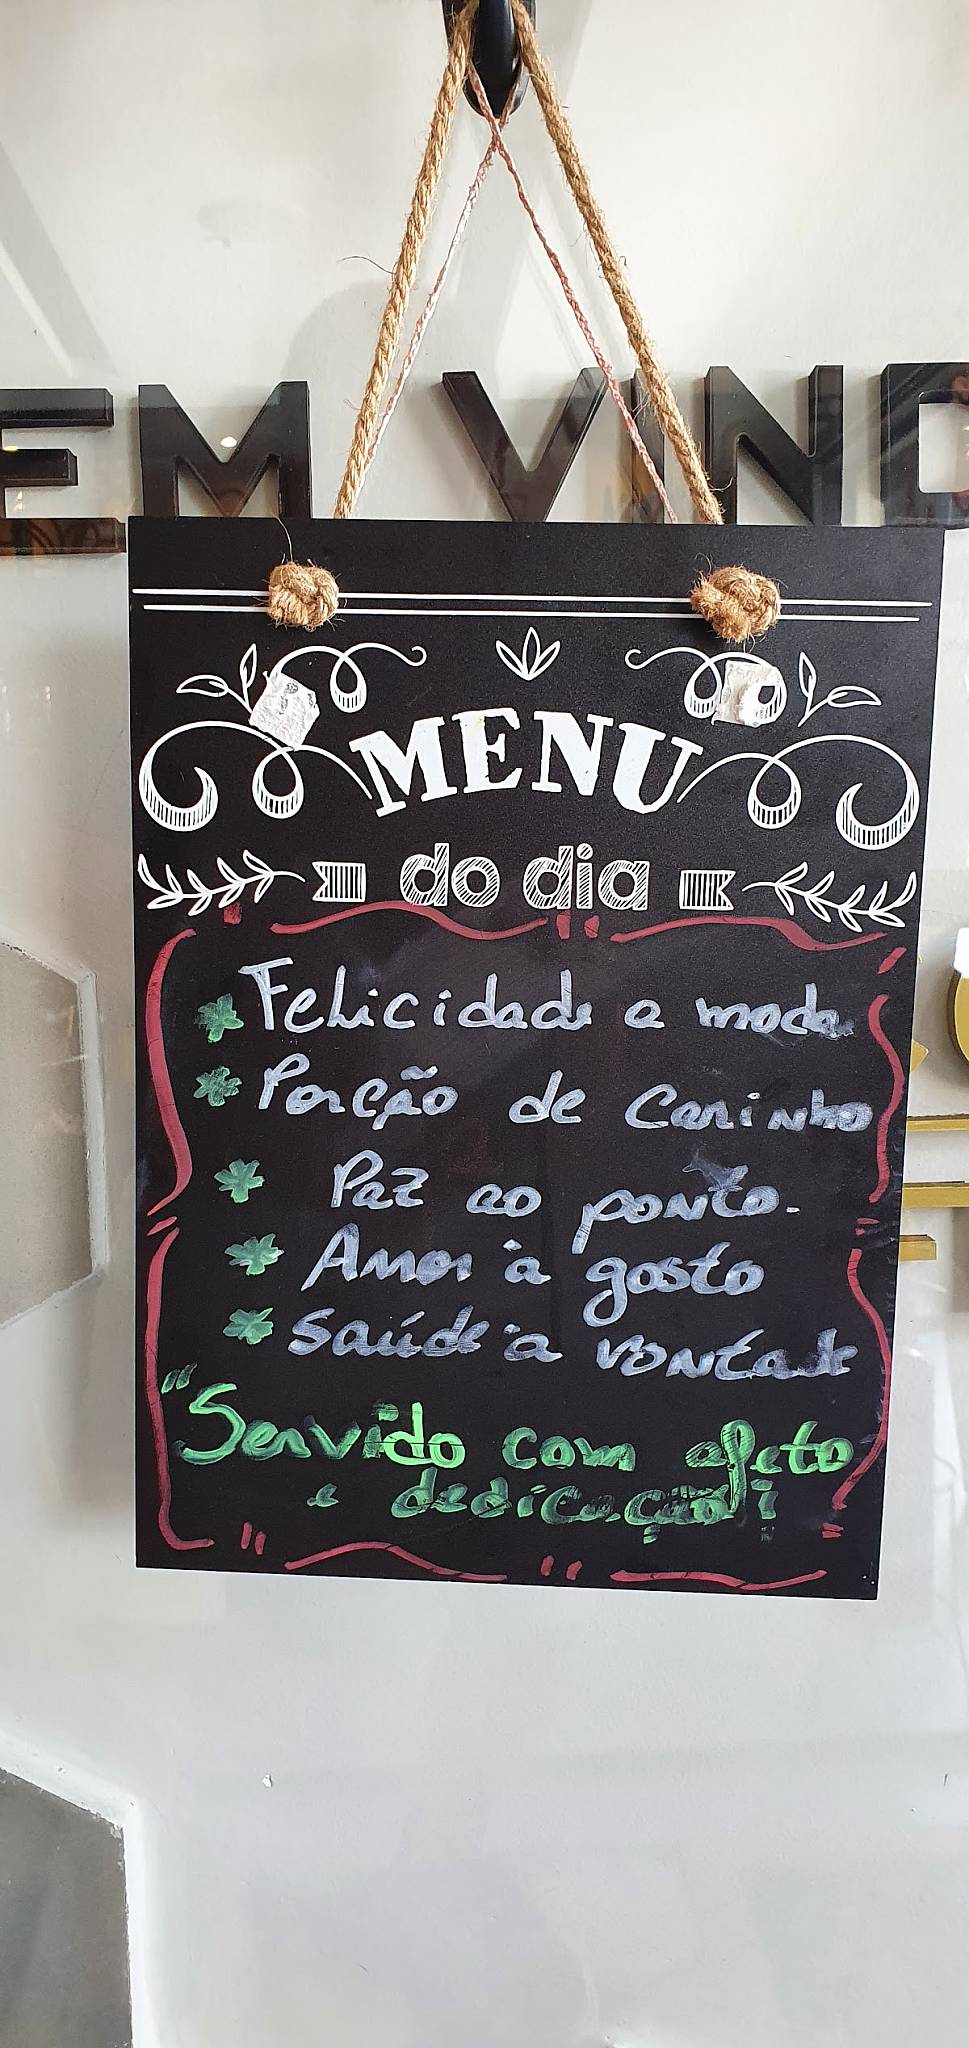 EM VIND
MENU
do dia
Felicidade a moda
Porção de Carinho
Paz ao ponto.
Amor à gosto
Saúde à vontade
"Servido com afeto
e dedicação!"